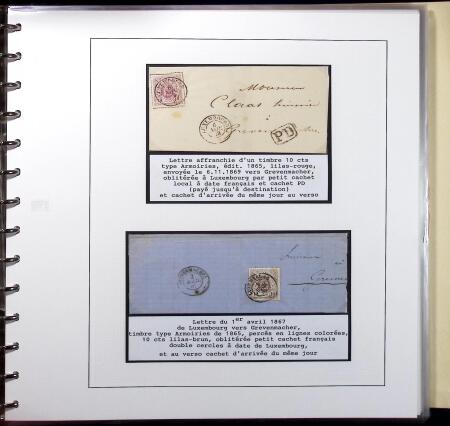 Monsieur
Claas
à
PD
Lettre affranchie d'un timbre 10 cts
type Armoiries, édit. 1865, lilas-rouge,
envoyée le 6.11.1869 vers Grevenmacher,
oblitérée à Luxembourg par petit cachet
local à date français et cachet PD
(payé jusqu'à destination)
et cachet d'arrivée du même jour au verso
à
Lettre du 1er avril 1867
de Luxembourg vers Grevenmacher,
timbre type Armoiries de 1865, percés en lignes colorées,
10 cts lilas-brun, oblitérée petit cachet français
double cercles à date de Luxembourg,
et au verso cachet d'arrivée du même jour